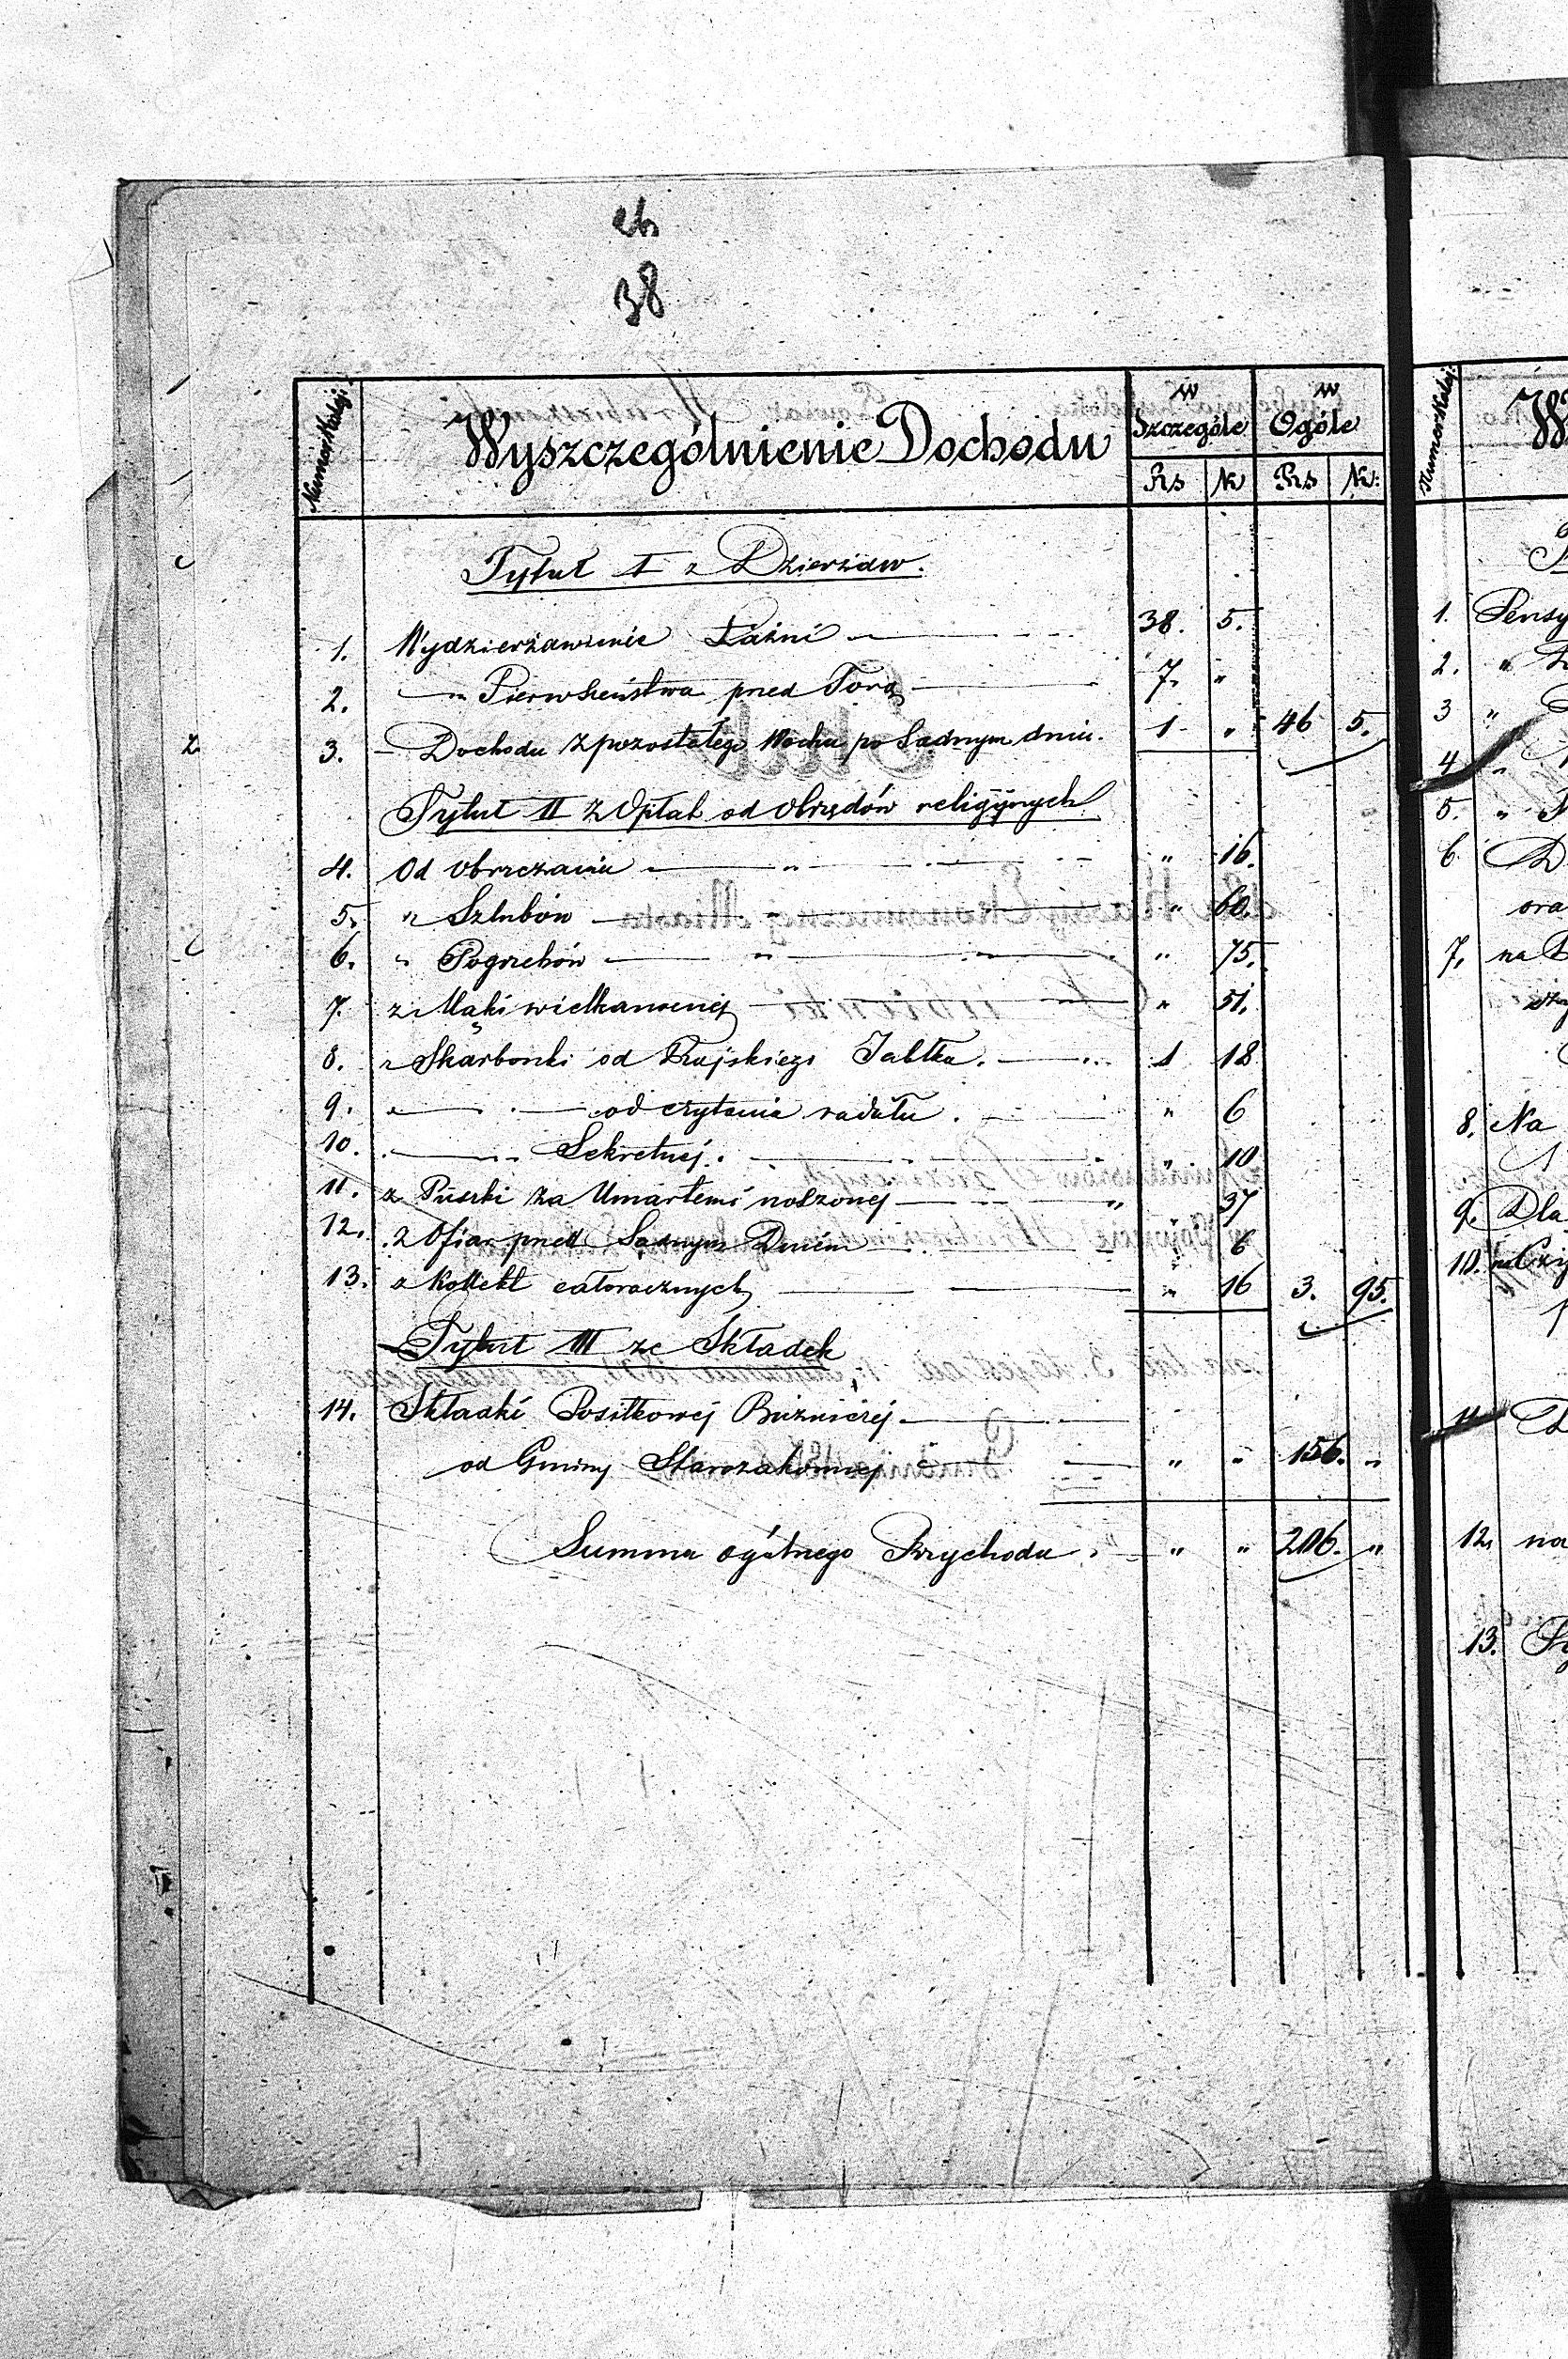 38
Numer Kolej:
Wyszczególnienie Dochodu
w Szczególe
w Ogóle
Rs K Rs K:
Tytuł I z Dzierżaw.
1. Wydzierżawienie Łaźni 38. 5.
2. " Pierwszeństwa przed Torą 7. "
3. Dochodu z pozostałego Wosku po Sądnym dniu. 1 " 46 5.
Tytuł II z Opłat od Obrzędów religijnych
4. Od Obrzezania " " 16.
5. " Szlubów " " 60.
6. " Pogrzebów " " 75.
7. z Mąki wielkanocnej " 51.
8. z Skarbonki od Rajskiego Jabłka. 1 18
9. " od czytania rodału. " 6
10. " Sekretnej. " 10
11. z Puszki za Umarłemi noszonej " 37
12. z Ofiar przed Sądnym Dniem " 6
13. z Kollekt całorocznych " 16 3. 95.
Tytuł III ze Składek
14. Składki Posiłkowej Bużniczej
od Gminy Starozakonnej " " 156. "
Summa ogólnego Przychodu. " " 206. "
Numer Kolej:
1. Pensy
2. "
3 "
4 "
5. "
6.
ora
7. na
8. Na
9. Dla
10.
11
12. na
13.